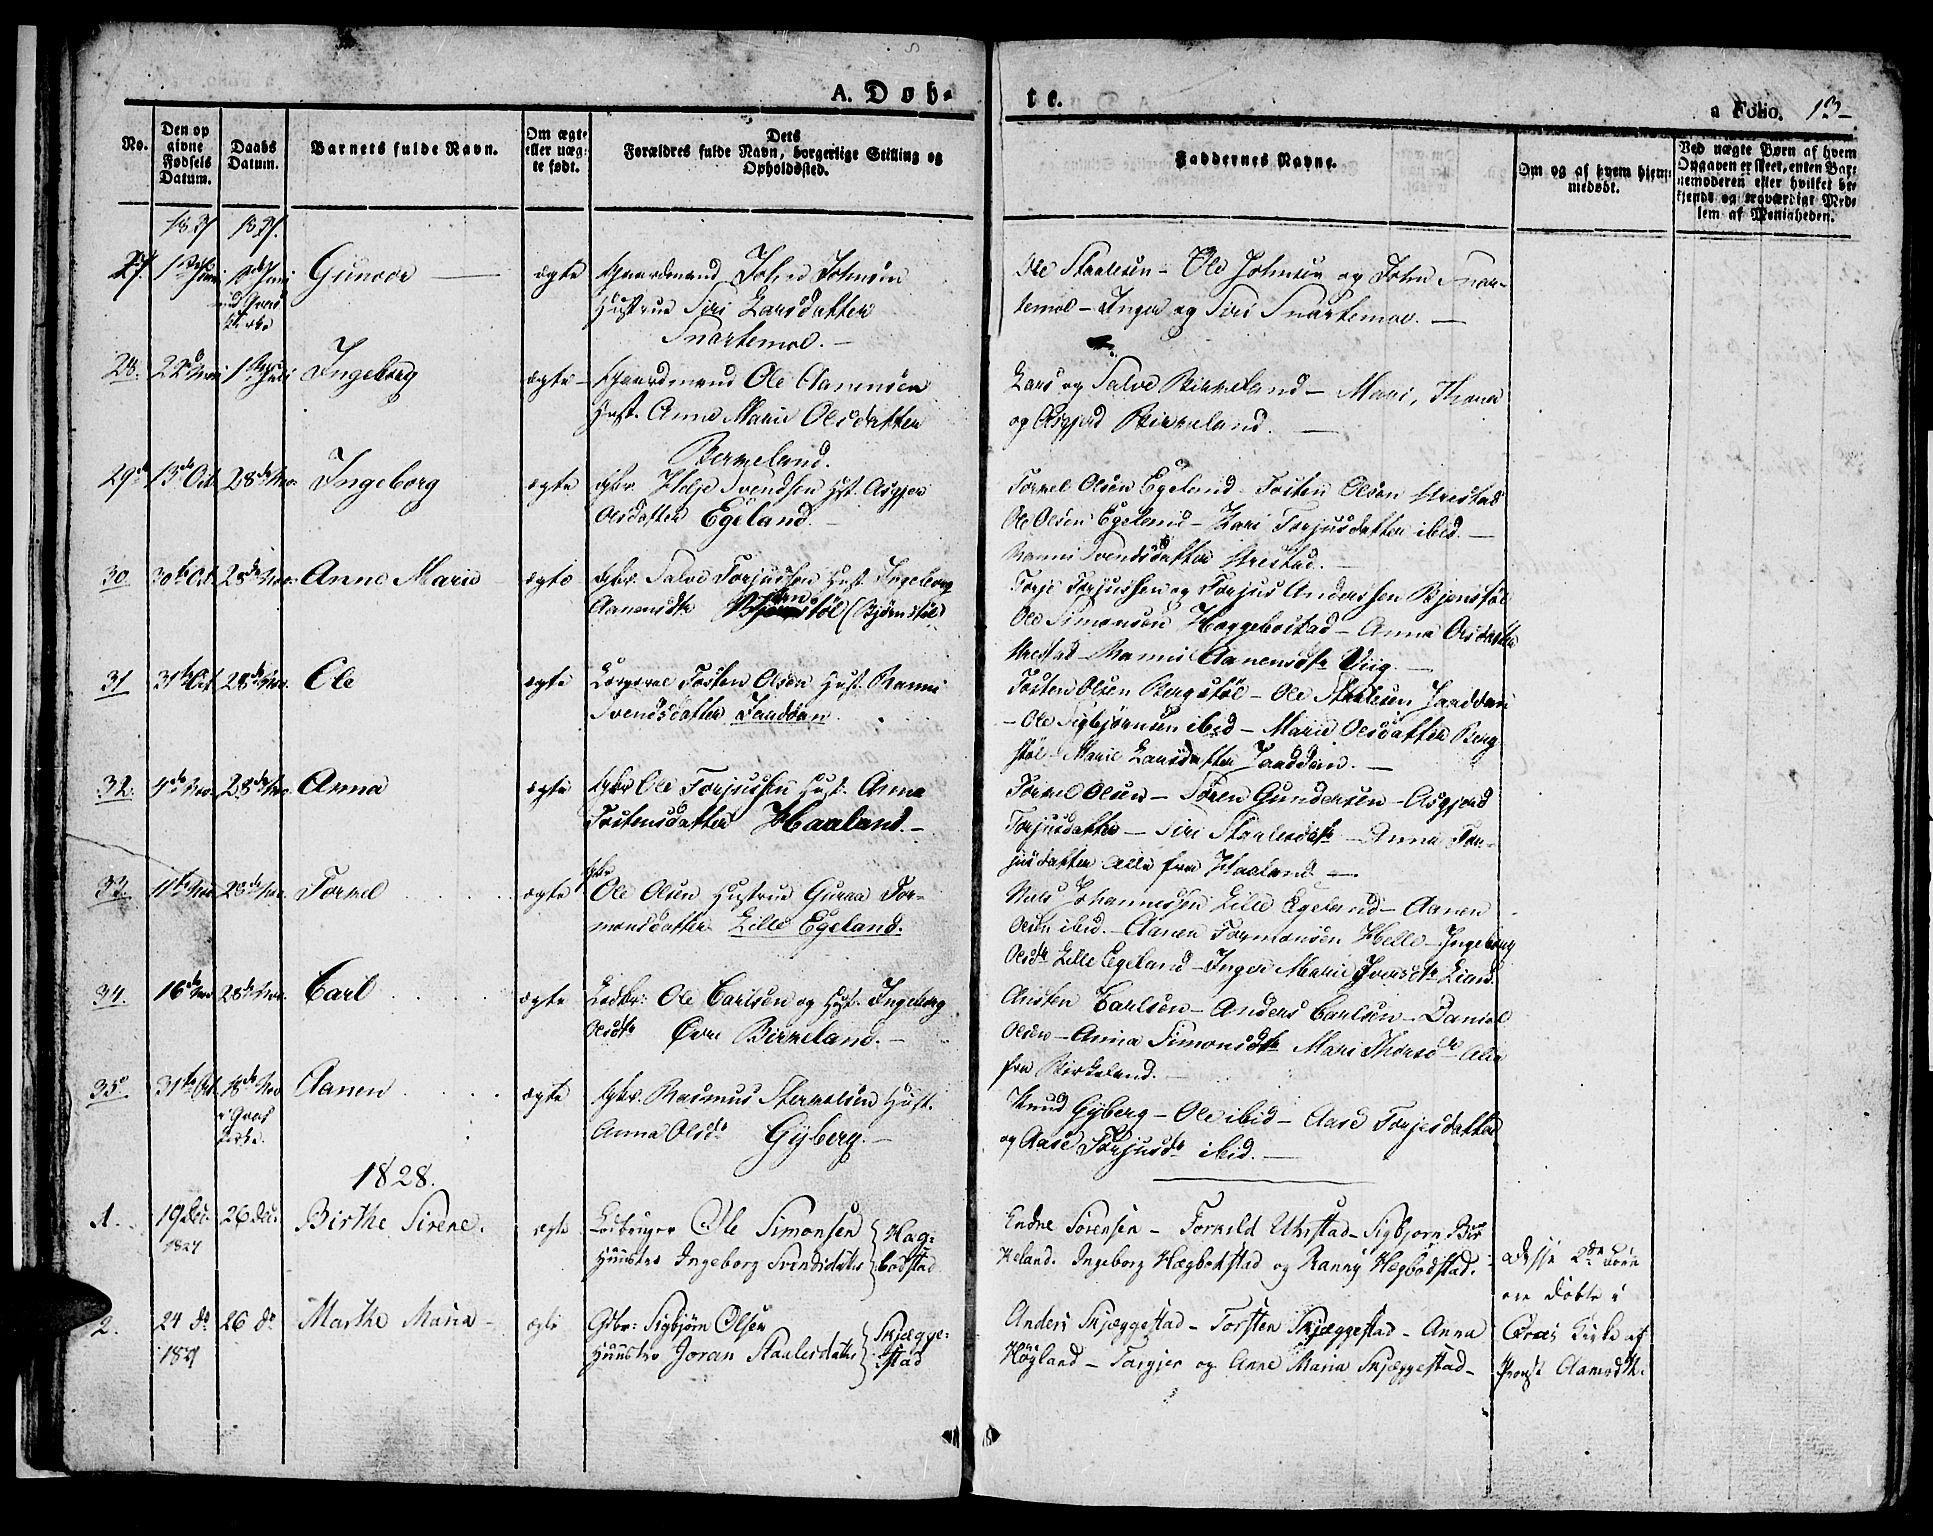 A. Döb-
te.
a Folio. 13
No.
Den op
givne
Födsels
Datum.
Daabs
Datum.
Barnets fulde Navn.
Om ægte
eller uæg-
te født.
Dets
Forældres fulde Navn, borgerlige Stilling og
Opholdssted.
Faddernes Navne.
Om og af hvem hjem-
medøbt.
Ved uægte Børn af hvem
Opgaven er skeet, enten Bar-
nemoderen eller hvilket be-
kjendt og troværdigt Med-
lem af Menigheden.
27
Gunvor
ægte
Gaardmand John Johnsen
Hustrue Siri Larsdatter
Snartemoe.
Ole Staalesen - Ole Johnsen og John Snar-
temoe - Inger og Siri Snartemoe.
28.
Ingeborg
ægte
Gaardmand Ole Aanensen
Hust. Anne Marie Olsdatter
Birkeland.
Lars og Salve Birkeland - Mari, Thore
og Asgjerd Birkeland.
29
13de Oct.
28de Nov.
Ingeborg
ægte
Gbr. Helje Svendsen Hst. Asgjer
Olsdatter Egeland.
Torkel Olsen Egeland - Tosten Olsen Urestad
Ole Olsen Egeland - Kari Torjusdatter ibid.
Ranni Svendsdatter Urestad.
30
30te Oct.
28de Nov.
Anne Marie
ægte
Gbr. Salve Torjussen Hust. Ingeborg
Aanensdtr (Bjørnstøl)
Torje Torjussen og Torjus Anderssen Bjenstøl
Ole Simonsen Heggebostad - Anna Olsdatter
Urestad - Ranni Aanensdtr Viig.
31
31te Oct.
28de Nov.
Ole
ægte
Corporal Tosten Olsen Hust. Ranni
Svendsdatter Jaaddan
Tosten Olsen Bergstøl - Ole Staalesen Jaaddan
- Ole Sigbjørnsen ibid - Marie Olsdatter Berg
støl - Marie Larsdatter Jaaddan.
32.
28de Nov.
Anna
ægte
Gbr Ole Torjussen Hust. Anna
Tostensdatter Haaland.
Torkel Olsen - Søren Gundersen - Asgjerd
Torjusdatter - Siri Staalesdtr - Anna Tor-
jusdatter alle fra Haaland.
33.
11te Nov.
28de Nov.
Torkel
ægte
Gbr
Ole Olsen Hustrue Guroe Tor-
monsdatter Lille Egeland.
Niels Johannessen Lille Egeland - Aanen
Olsen ibid. - Aanen Tormonsen Helle - Ingeborg
Olsdtr Lille Egeland - Inger Marie Iversdtr Lian
34.
16de Nov.
28de Nov.
Carl
ægte
Ledbr: Ole Carlsen og Hust. Ingeborg
Olsdtr Øvre Birkeland.
Austen Carlsen - Anders Carlsen - Daniel
Olsen - Anna Simonsdtr Mari Thorsdr Alle
fra Birkeland.
35
31te Oct.
18de Nov
i Qvaas
Kirke.
Aanen
ægte
Gbr. Rasmus Sterkelsen Hust.
Anna Olsdtr Gyberg.
Knud Gyberg - Ole ibid - Aase Torjesdatter
og Aase Torjusdtr ibid.
1828.
1.
19 Dec.
1827
26 Dec.
Birthe Sirene.
ægte
Ledbruger Ole Simonsen
Huustro Ingeborg Svendsdatter
Hæg-
bodstad
Endre Sørensen - Torkild Urstad - Sigbjørn Bir
keland. Ingeborg Hægbodstad og Ranny Hægbodstad.
2.
24 do
1827
26 do
Marthe Maria
ægte
Gbr: Sigbjørn Olsen
Huustro Joran Staalesdatter
Skjægge-
stad
Anders Skjæggestad - Torsten Skjæggestad - Anna
Högland - Torgjer og Anne Maria Skjæggestad -
Disse 2de Börn
ere döbte i
Qvaas Kirke af
Provst Aamodt.